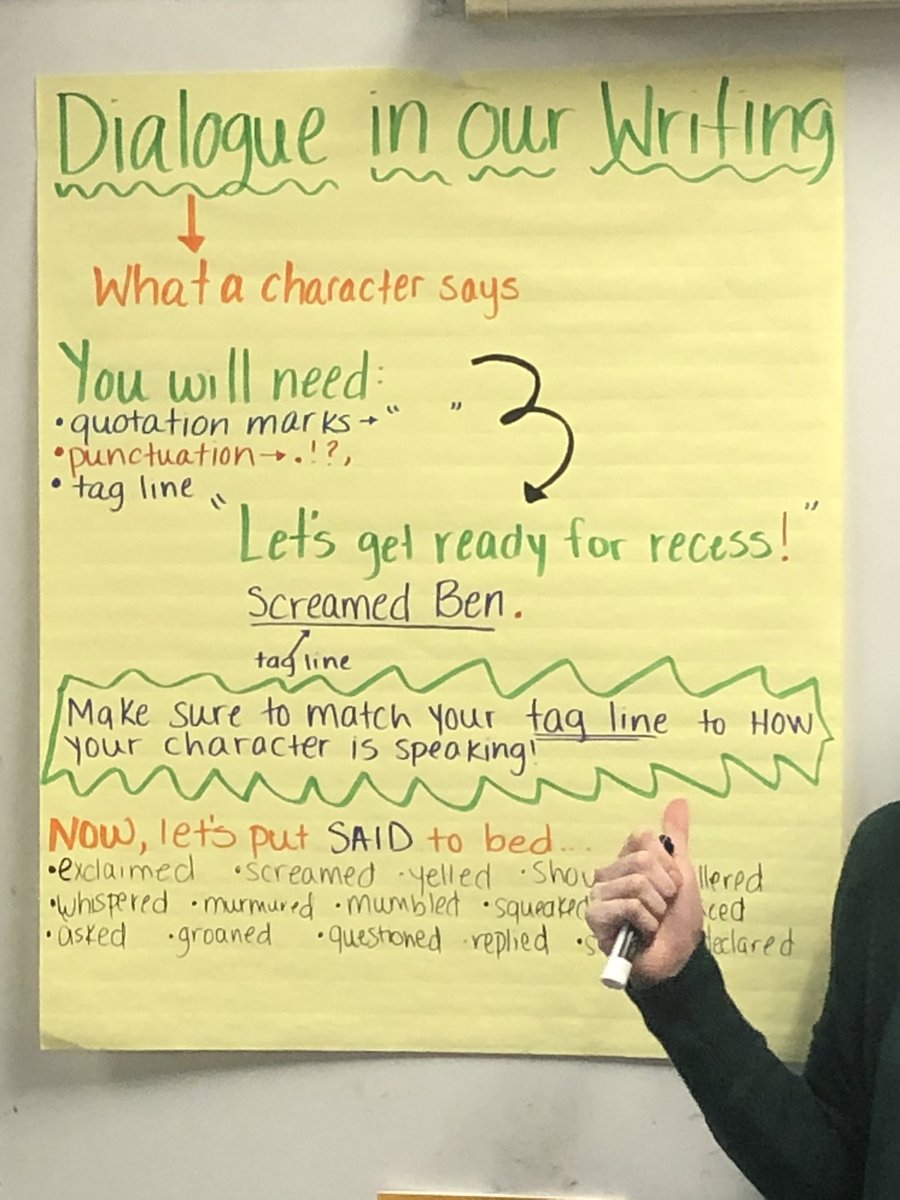 Dialogue in our Writing
What a character says
You will need:
•quotation marks→“ ”
•punctuation→.!?,
•tag line
“Let's get ready for recess!”
Screamed Ben.
tag line
Make sure to match your tag line to How
your character is speaking!
NOW, let's put SAID to bed...
•exclaimed •screamed •yelled
•whispered •murmured •mumbled •squeaked
•asked •groaned •questioned •replied